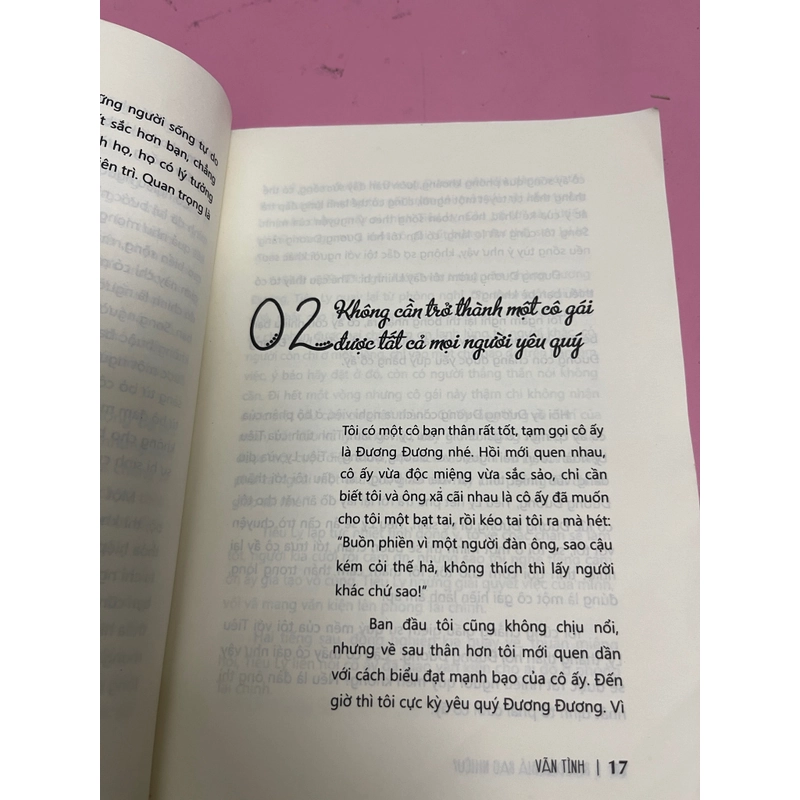 ững người sống tự do
t sắc hơn bạn, chẳng
h họ, họ có lý tưởng
iên trì. Quan trọng là
02 Không cần trở thành một cô gái
được tất cả mọi người yêu quý
Tôi có một cô bạn thân rất tốt, tạm gọi cô ấy
là Đương Đương nhé. Hồi mới quen nhau,
cô ấy vừa độc miệng vừa sắc sảo, chỉ cần
biết tôi và ông xã cãi nhau là cô ấy đã muốn
cho tôi một bạt tai, rồi kéo tai tôi ra mà hét:
“Buồn phiền vì một người đàn ông, sao cậu
kém cỏi thế hả, không thích thì lấy người
khác chứ sao!”
Ban đầu tôi cũng không chịu nổi,
nhưng về sau thân hơn tôi mới quen dần
với cách biểu đạt mạnh bạo của cô ấy. Đến
giờ thì tôi cực kỳ yêu quý Đương Đương. Vì
VÃN TÌNH | 17